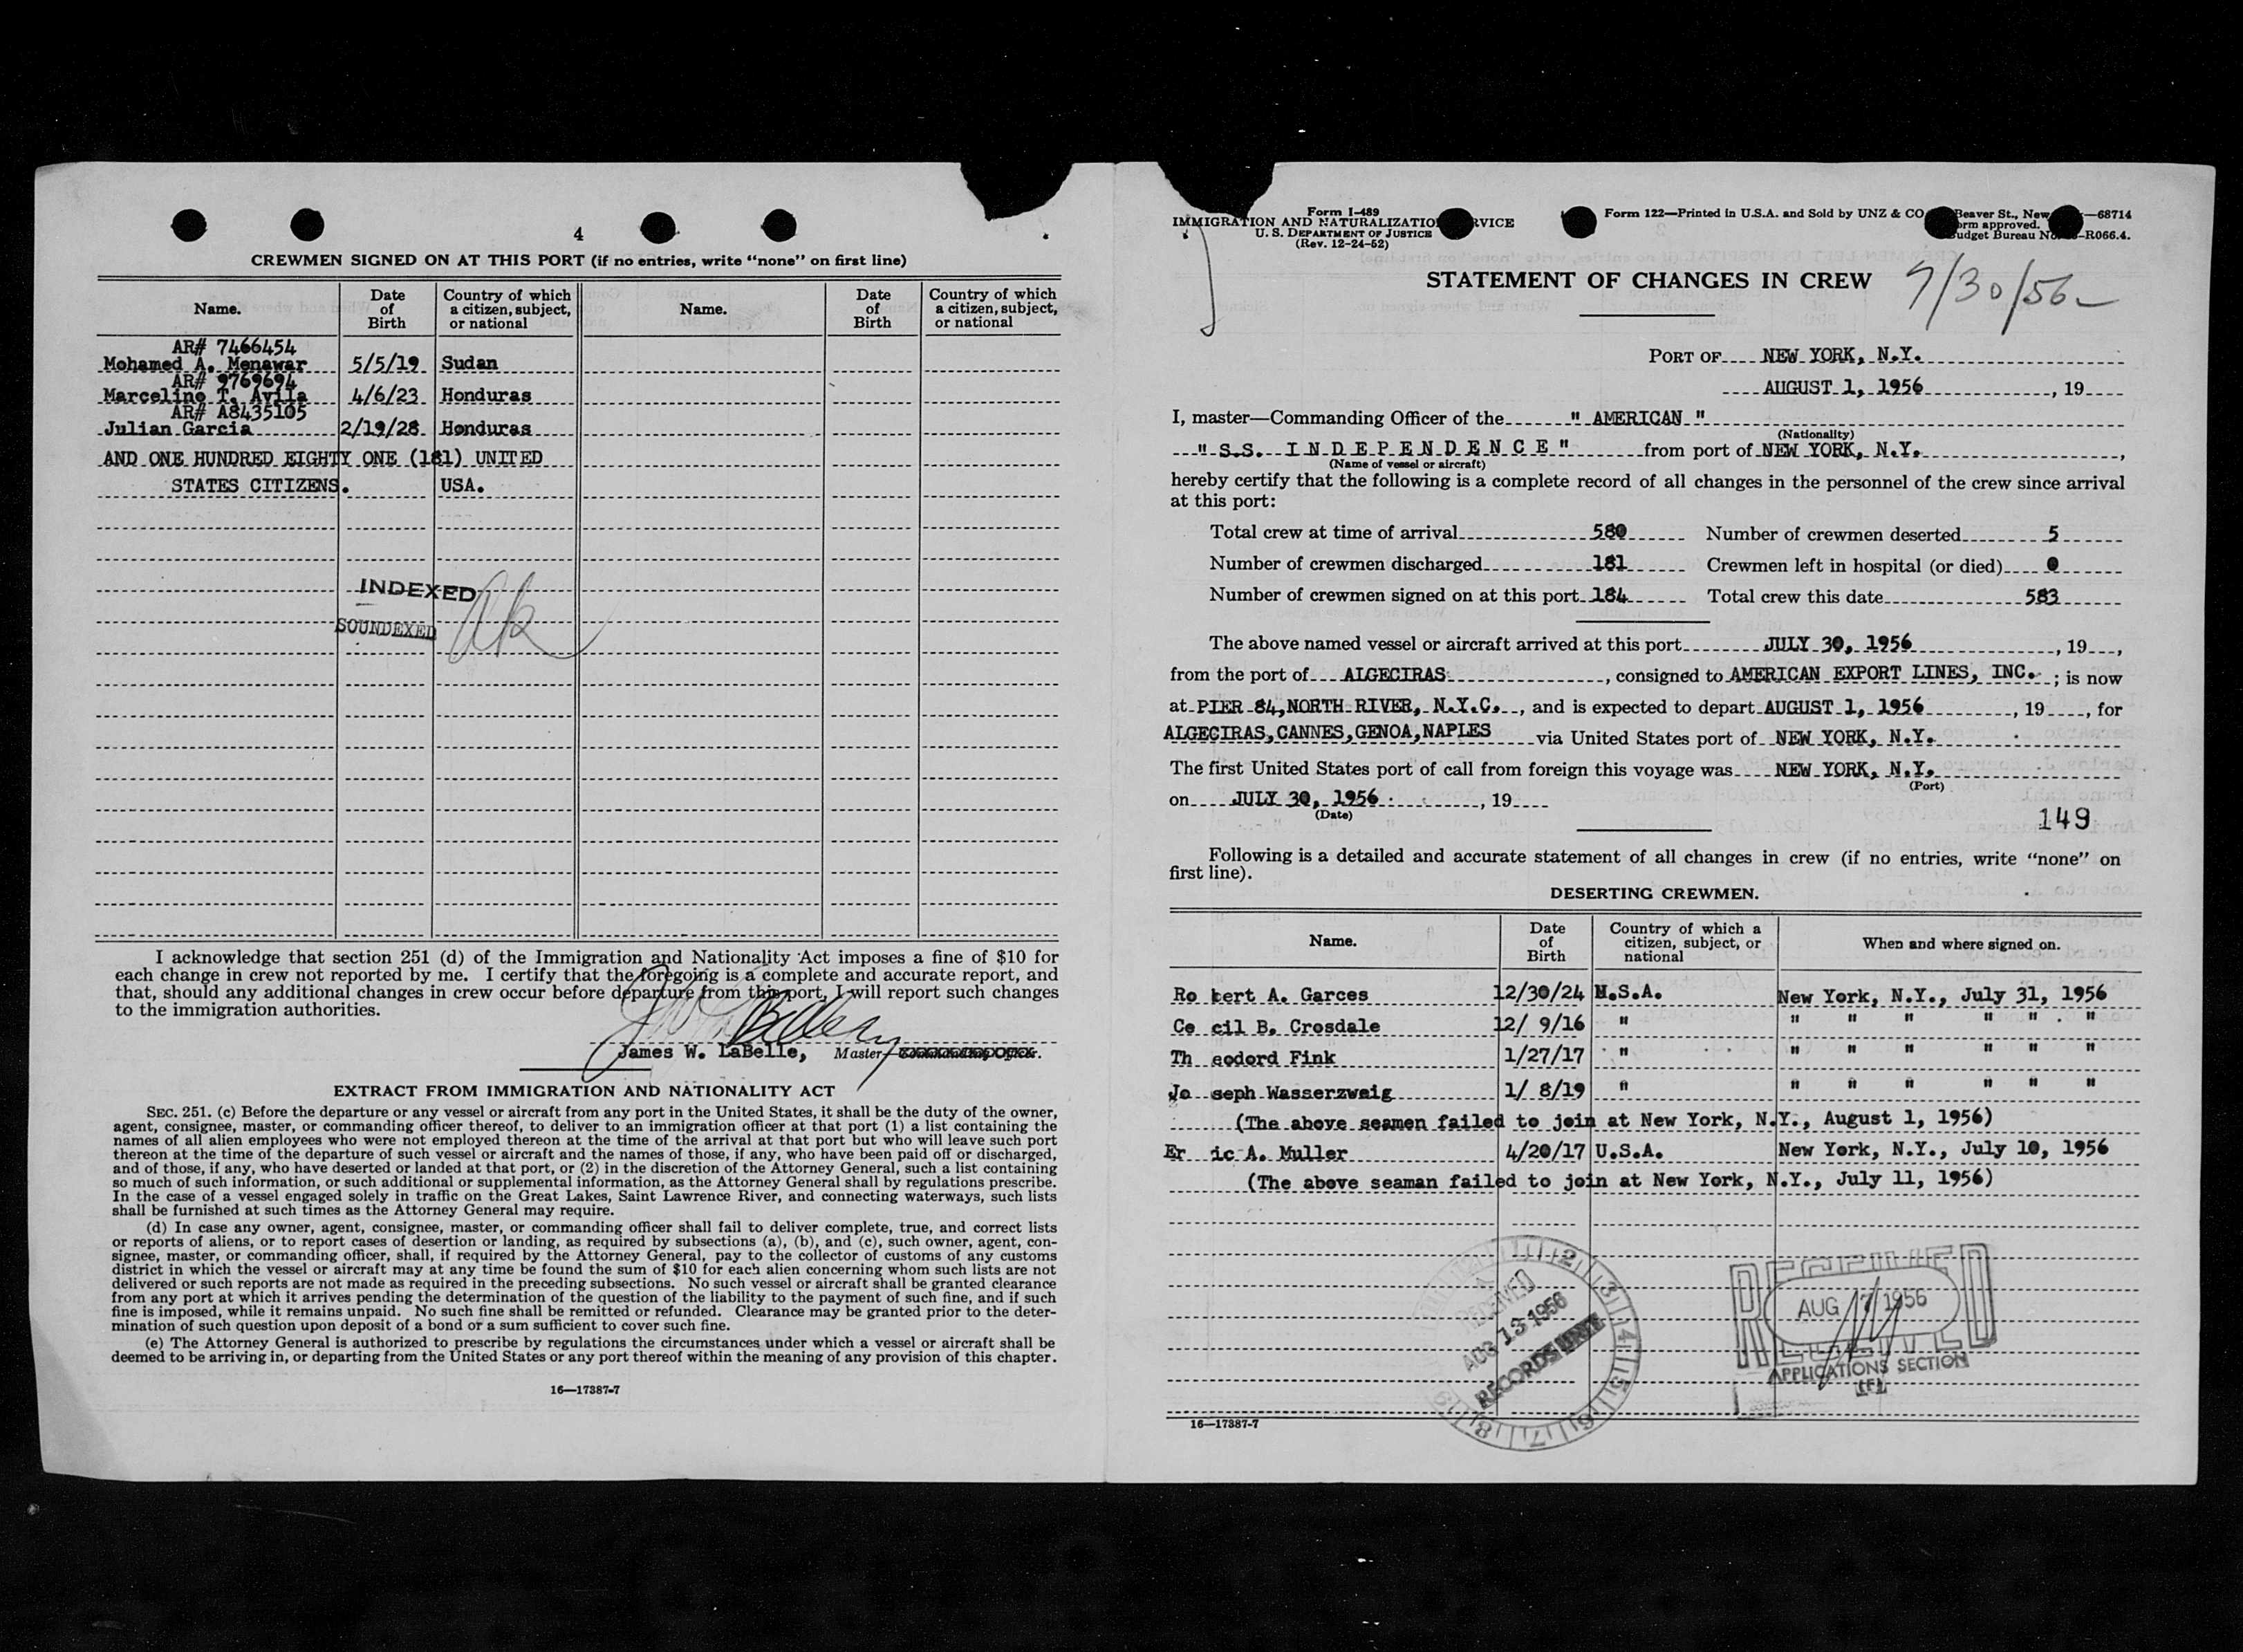 4
CREWMEN SIGNED ON AT THIS PORT (if no entries, write "none" on first line)
Name. Date of Birth Country of which a citizen, subject, or national Name. Date of Birth Country of which a citizen, subject, or national
AR# 7466454
Mohamed A. Menawar 5/5/19 Sudan
AR# 9769694
Marcelino T. Avila 4/6/23 Honduras
AR# A8435105
Julian Garcia 2/19/28 Honduras
AND ONE HUNDRED EIGHTY ONE (181) UNITED
STATES CITIZENS. USA.
INDEXED
SOUNDEXED
I acknowledge that section 251 (d) of the Immigration and Nationality Act imposes a fine of $10 for
each change in crew not reported by me. I certify that the foregoing is a complete and accurate report, and
that, should any additional changes in crew occur before departure from this port, I will report such changes
to the immigration authorities.
James W. LaBelle, Master
EXTRACT FROM IMMIGRATION AND NATIONALITY ACT
SEC. 251. (c) Before the departure or any vessel or aircraft from any port in the United States, it shall be the duty of the owner,
agent, consignee, master, or commanding officer thereof, to deliver to an immigration officer at that port (1) a list containing the
names of all alien employees who were not employed thereon at the time of the arrival at that port but who will leave such port
thereon at the time of the departure of such vessel or aircraft and the names of those, if any, who have been paid off or discharged,
and of those, if any, who have deserted or landed at that port, or (2) in the discretion of the Attorney General, such a list containing
so much of such information, or such additional or supplemental information, as the Attorney General shall by regulations prescribe.
In the case of a vessel engaged solely in traffic on the Great Lakes, Saint Lawrence River, and connecting waterways, such lists
shall be furnished at such times as the Attorney General may require.
(d) In case any owner, agent, consignee, master, or commanding officer shall fail to deliver complete, true, and correct lists
or reports of aliens, or to report cases of desertion or landing, as required by subsections (a), (b), and (c), such owner, agent, con-
signee, master, or commanding officer, shall, if required by the Attorney General, pay to the collector of customs of any customs
district in which the vessel or aircraft may at any time be found the sum of $10 for each alien concerning whom such lists are not
delivered or such reports are not made as required in the preceding subsections. No such vessel or aircraft shall be granted clearance
from any port at which it arrives pending the determination of the question of the liability to the payment of such fine, and if such
fine is imposed, while it remains unpaid. No such fine shall be remitted or refunded. Clearance may be granted prior to the deter-
mination of such question upon deposit of a bond or a sum sufficient to cover such fine.
(e) The Attorney General is authorized to prescribe by regulations the circumstances under which a vessel or aircraft shall be
deemed to be arriving in, or departing from the United States or any port thereof within the meaning of any provision of this chapter.
16—17387-7
Form I-489
IMMIGRATION AND NATURALIZATIO RVICE
U. S. DEPARTMENT OF JUSTICE
(Rev. 12-24-52)
Form 122—Printed in U.S.A. and Sold by UNZ & CO Beaver St., New —68714
orm approved.
udget Bureau No. -R066.4.
STATEMENT OF CHANGES IN CREW
7/30/56
PORT OF NEW YORK, N.Y.
AUGUST 1, 1956, 19
I, master—Commanding Officer of the " AMERICAN "
(Nationality)
" S.S. I N D E P E N D E N C E " from port of NEW YORK, N.Y.,
(Name of vessel or aircraft)
hereby certify that the following is a complete record of all changes in the personnel of the crew since arrival
at this port:
Total crew at time of arrival 580 Number of crewmen deserted 5
Number of crewmen discharged 181 Crewmen left in hospital (or died) 0
Number of crewmen signed on at this port 184 Total crew this date 583
The above named vessel or aircraft arrived at this port JULY 30, 1956, 19,
from the port of ALGECIRAS, consigned to AMERICAN EXPORT LINES, INC. ; is now
at PIER 84, NORTH RIVER, N.Y.C., and is expected to depart AUGUST 1, 1956, 19, for
ALGECIRAS,CANNES,GENOA,NAPLES via United States port of NEW YORK, N.Y.
The first United States port of call from foreign this voyage was NEW YORK, N.Y.
(Port)
on JULY 30, 1956, 19
(Date)
149
Following is a detailed and accurate statement of all changes in crew (if no entries, write "none" on
first line).
DESERTING CREWMEN.
Name. Date of Birth Country of which a citizen, subject, or national When and where signed on.
Ro bert A. Garces 12/30/24 U.S.A. New York, N.Y., July 31, 1956
Ce cil B. Crosdale 12/ 9/16 " " " " " " "
Th eodord Fink 1/27/17 " " " " " " "
Jo seph Wasserzweig 1/ 8/19 " " " " " " "
(The above seamen failed to join at New York, N.Y., August 1, 1956)
Er ic A. Muller 4/20/17 U.S.A. New York, N.Y., July 10, 1956
(The above seaman failed to join at New York, N.Y., July 11, 1956)
RECEIVED
AUG 13 1956
RECORDS UNIT
RECEIVED
AUG 7 1956
APPLICATIONS SECTION
16—17387-7